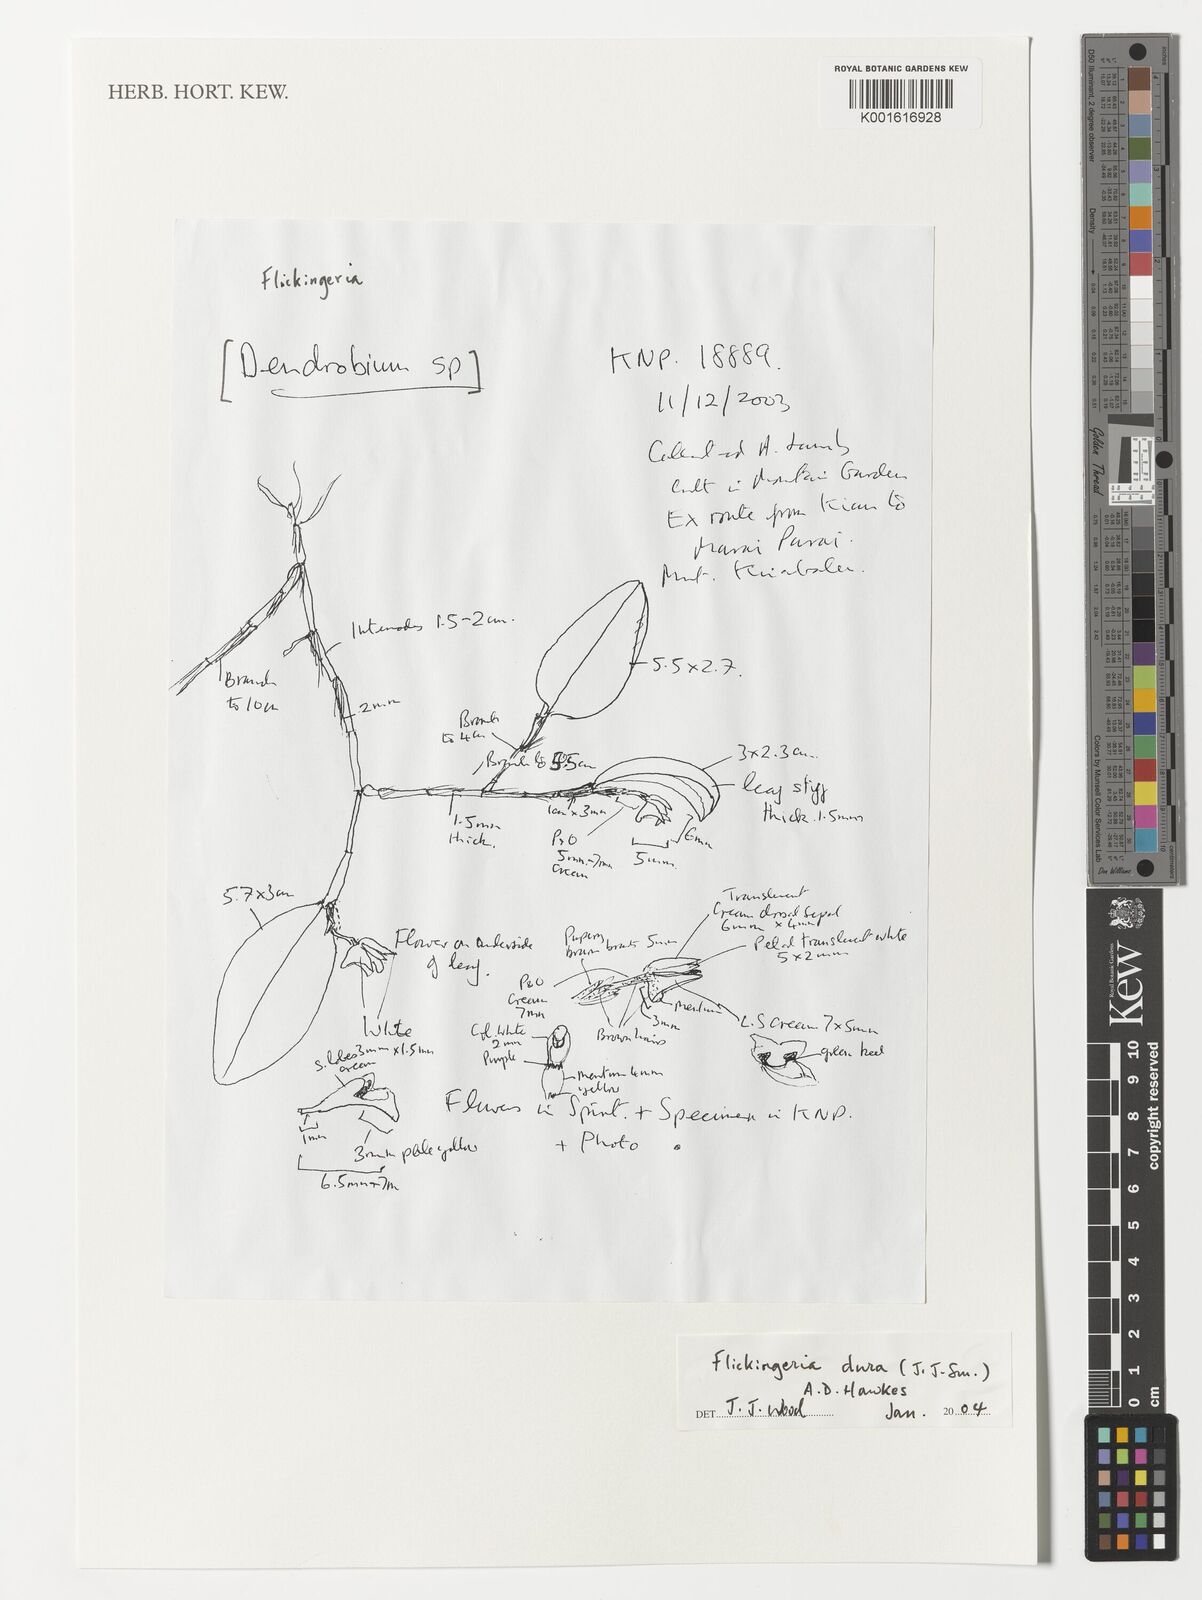 HERB. HORT. KEW.
ROYAL BOTANIC GARDENS KEW
K001616928
Flickingeria
[Dendrobium sp]
KNP. 18889.
11/12/2003
Collected A. Lamb
Cult in Mountain Garden
Ex route from Kiau to
Marai Parai.
Mnt. Kinabalu.
Internodes 1.5-2cm.
Branch
to 10cm
2mm
5.5 x 2.7.
Branch
to 4cm
Branch to 5.5cm
3 x 2.3cm.
leaf stiff
thick. 1.5mm
1.5mm
thick.
1cm x 3mm
P&O
5mm-7mm
cream
5mm.
6mm
5.7 x 3cm
Flower on underside
of leaf.
White
Translucent
Cream dorsal sepal
6mm x 4mm
Petal translucent white
5 x 2mm
Papery
brown bracts 5mm
P&O
Cream
7mm
mentum
3mm
L.S Cream 7 x 5mm
Brown hairs
Col. White
2mm
Purple
mentum 4mm
yellow
green keel
S. lobes 3mm x 1.5mm
cream
1mm
3mm pale yellow
6.5mm-7m
Flowers in Spirit. + Specimen in KNP.
+ Photo
Flickingeria dura (J.J.Sm.)
A.D. Hawkes
DET J. J. Wood Jan. 2004
Kew
Royal Botanic Gardens
copyright reserved
10
9
8
7
6
5
4
3
2
1
0
cm
D50 Illuminant, 2 degree observer
Density
Golden Thread
Colors by Munsell Color Services Lab
Don Williams
inches
centimeters